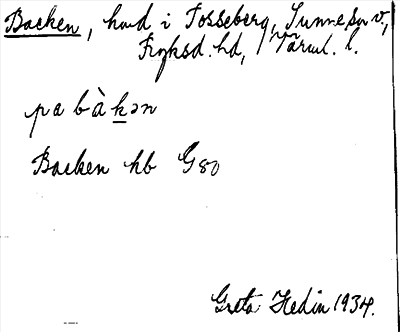 Backen, hmd i Tosseberg, Sunne sn v.,
Fryksd. hd, Värml. l.
pa bàkən
Backen hb G80
Greta Hedin 1934.